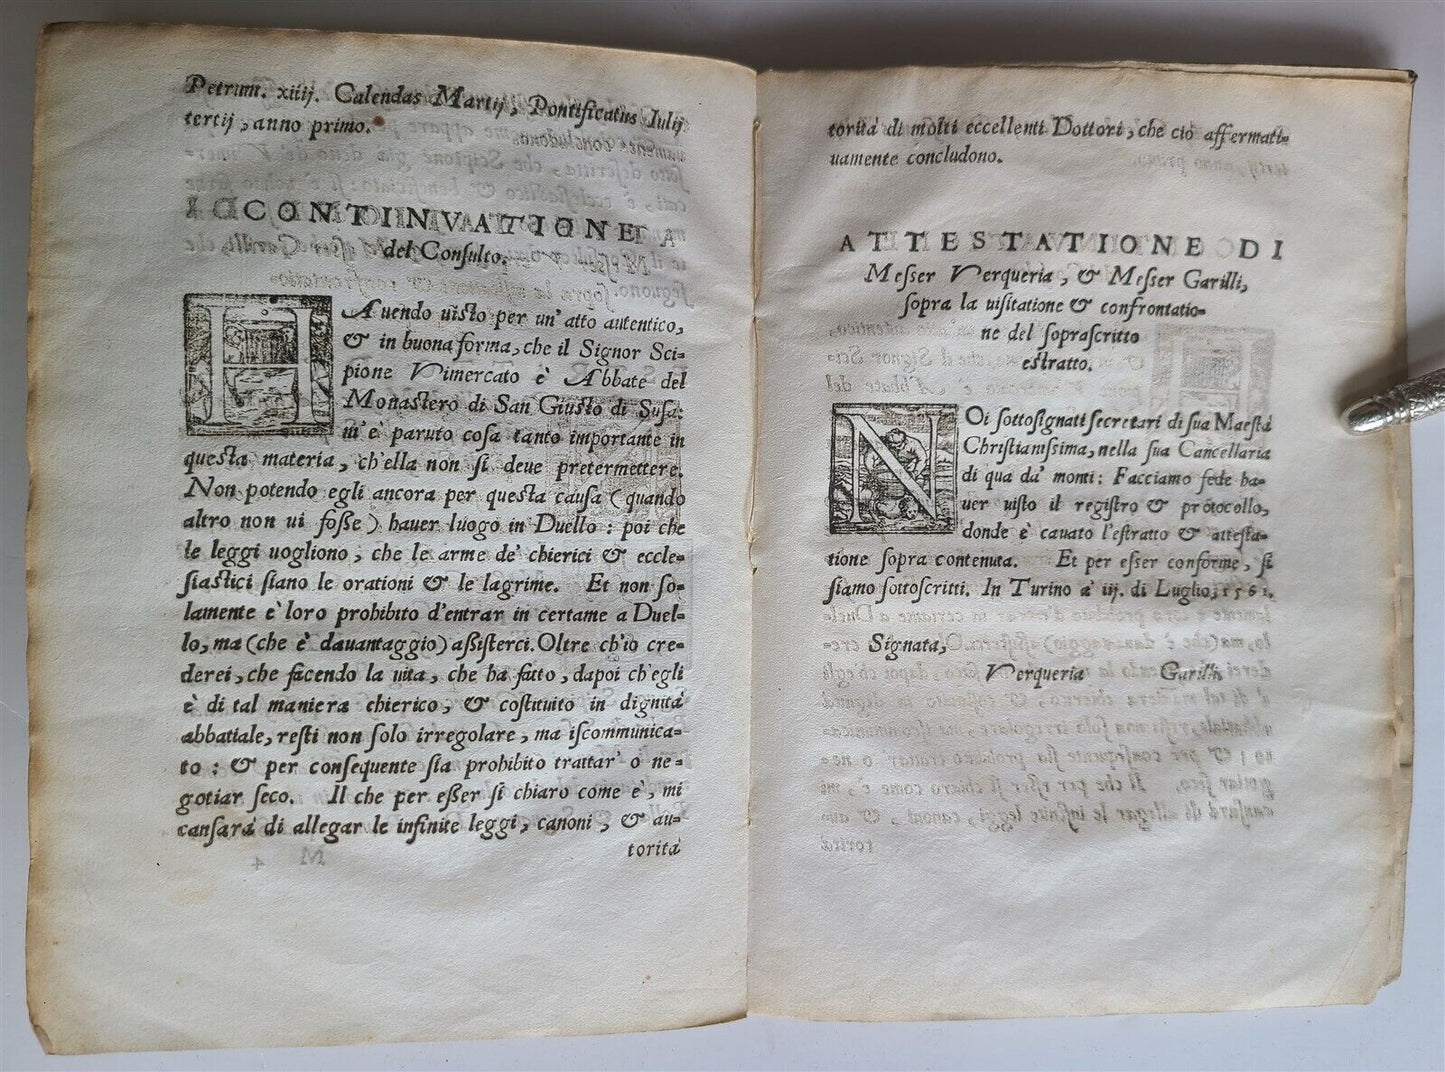 Petrum. xiiij. Calendas Martij, Pontificatus Iulij
tertij, anno primo.
CONTINVATIONE
del Consulto.
HAuendo uisto per un' atto autentico,
& in buona forma, che il Signor Sci-
pione Vimercato è Abbate del
Monastero di San Giusto di Susa:
m'è paruto cosa tanto importante in
questa materia, ch'ella non si deue pretermettere.
Non potendo egli ancora per questa causa (quando
altro non ui fosse) hauer luogo in Duello: poi che
le leggi uogliono, che le arme de' chierici & eccle-
siastici siano le orationi & le lagrime. Et non so-
lamente è loro prohibito d'entrar in certame a Duel-
lo, ma (che è dauantaggio) assisterci. Oltre ch'io cre-
derei, che facendo la uita, che ha fatto, dapoi ch'egli
è di tal maniera chierico, & costituito in dignità
abbatiale, resti non solo irregolare, ma iscommunica-
to: & per consequente sia prohibito trattar' o ne-
gotiar seco. Il che per esser sì chiaro come è, mi
cansarà di allegar le infinite leggi, canoni, & au-
torità
torità di molti eccellenti Dottori, che ciò affermati-
uamente concludono.
ATTESTATIONE DI
Messer Verqueria, & Messer Garilli,
sopra la uisitatione & confrontatio-
ne del soprascritto
estratto.
NOi sottosignati secretari di sua Maestà
Christianissima, nella sua Cancellaria
di qua da' monti: Facciamo fede ha-
uer uisto il registro & protocollo,
donde è cauato l'estratto & attesta-
tione sopra contenuta. Et per esser conforme, si
siamo sottoscritti. In Turino à iij. di Luglio, 1561.
Signata,
Verqueria Garilli